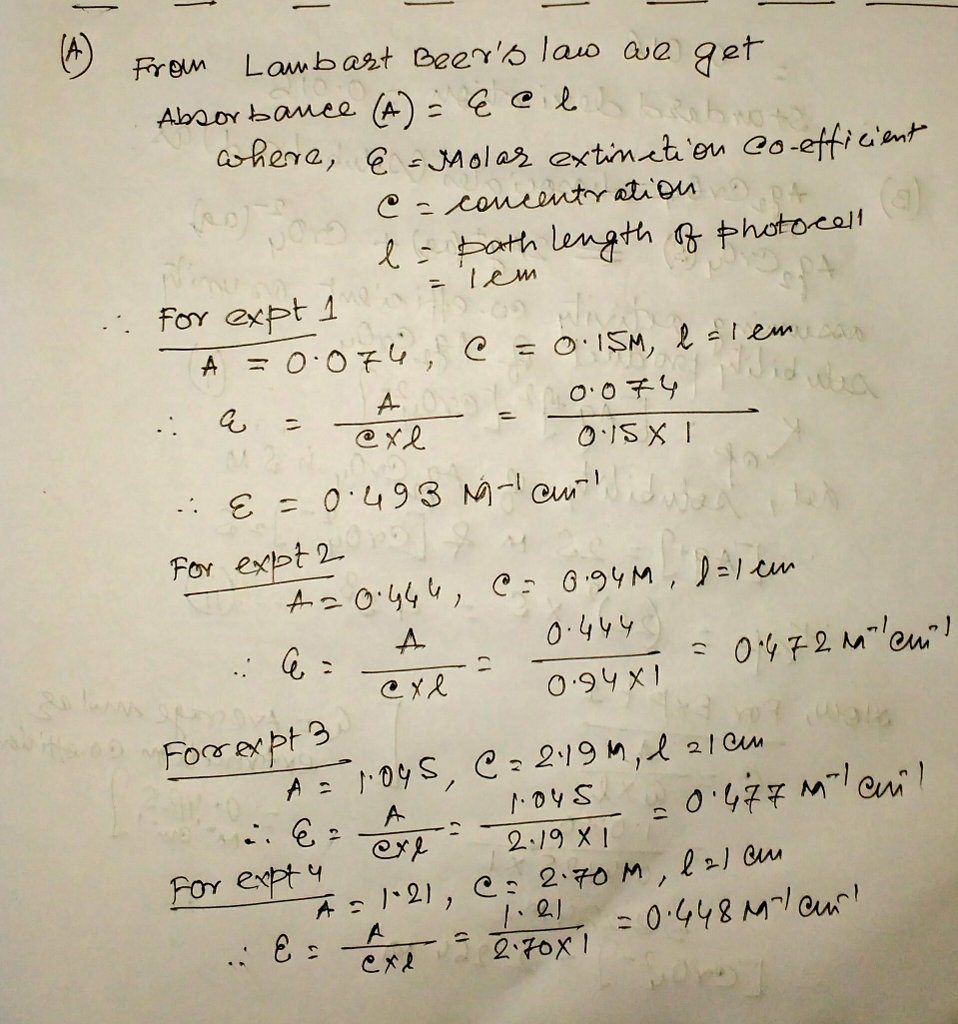 (A) From Lambart Beer's law we get
Absorbance (A) = ε c l
where, ε = Molar extinction co-efficient
c = concentration
l = path length of photocell
= 1 cm
∴ For expt 1
A = 0.074, c = 0.15M, l = 1 cm
∴ ε = A / c×l = 0.074 / 0.15 × 1
∴ ε = 0.493 M⁻¹ cm⁻¹
For expt 2
A = 0.444, c = 0.94M, l = 1 cm
∴ ε = A / c×l = 0.444 / 0.94 × 1 = 0.472 M⁻¹ cm⁻¹
For expt 3
A = 1.045, c = 2.19 M, l = 1 cm
∴ ε = A / c×l = 1.045 / 2.19 × 1 = 0.477 M⁻¹ cm⁻¹
For expt 4
A = 1.21, c = 2.70 M, l = 1 cm
∴ ε = A / c×l = 1.21 / 2.70×1 = 0.448 M⁻¹ cm⁻¹